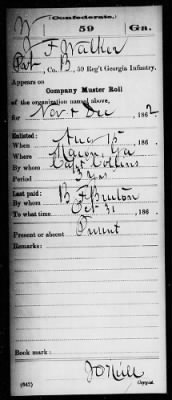 W (Confederate.)
59 Ga.
J F Walker
Pvt, Co. B, 59 Reg't Georgia Infantry.
Appears on
Company Muster Roll
of the organization named above,
for Nov & Dec, 1862.
Enlisted:
When Aug 15, 186 .
Where Macon Ga
By whom Capt Collins
Period 3 yrs
Last paid:
By whom B F Bruton
To what time Oct 31, 186 .
Present or absent Present
Remarks:
Book mark:
J O Hill
(642) Copyist.